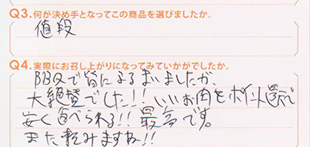 Q3. 何が決め手となってこの商品を選びましたか。
値段
Q4. 実際にお召し上がりになってみていかがでしたか。
BBQで皆にふるまいましたが、
大絶賛でした!! いいお肉をポイント還元で
安く食べられる!! 最高です。
また頼みますね!!